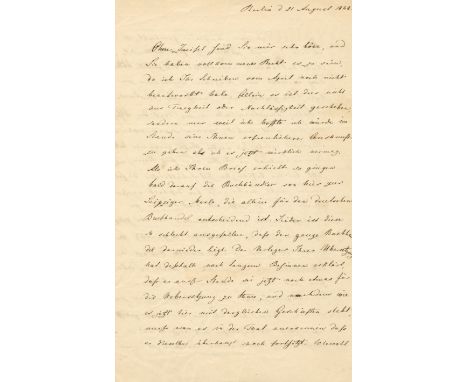 Berlin d 21 August 1844
Ohne Zweifel sind Sie mir sehr böse, und
Sie haben vollkommenes Recht es zu sein,
da ich Ihr Schreiben vom April noch nicht
beantwortet habe. Allein es ist dies nicht
aus Trägheit oder Nachlässigkeit geschehen
sondern nur weil ich hoffte ich würde im
Stande sein Ihnen erfreulichere Auskunft
zu geben als ich es jetzt wirklich vermag.
Als ich Ihren Brief erhielt so gingen
bald darauf die Buchhändler von hier zur
Leipziger Messe, die allein für den deutschen
Buchhandel entscheidend ist. Leider ist diese
so schlecht ausgefallen, daß der ganze Buchhan
del darnieder liegt. Der Verleger Ihrer Übersetzung
hat deshalb nach langem Besinnen erklärt
daß er außer Stande sei jetzt noch etwas für
die Uebersetzung zu thun, und nachdem wie
es jetzt hier mit dergleichen Geschäften steht
muß man es in der That anerkennen daß
er dieselbe überhaupt noch fortsetzt. Obwohl